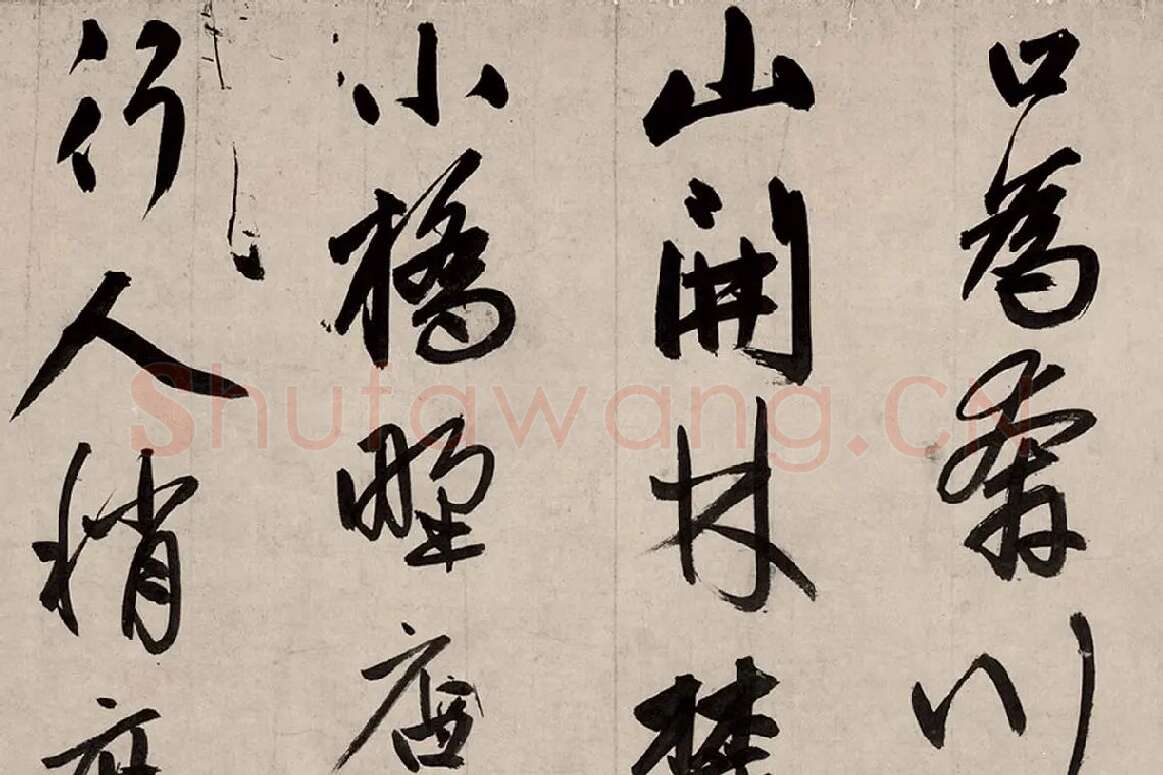 口為奔川
山開林
小橋野店
行人稍
Shufawang.CN